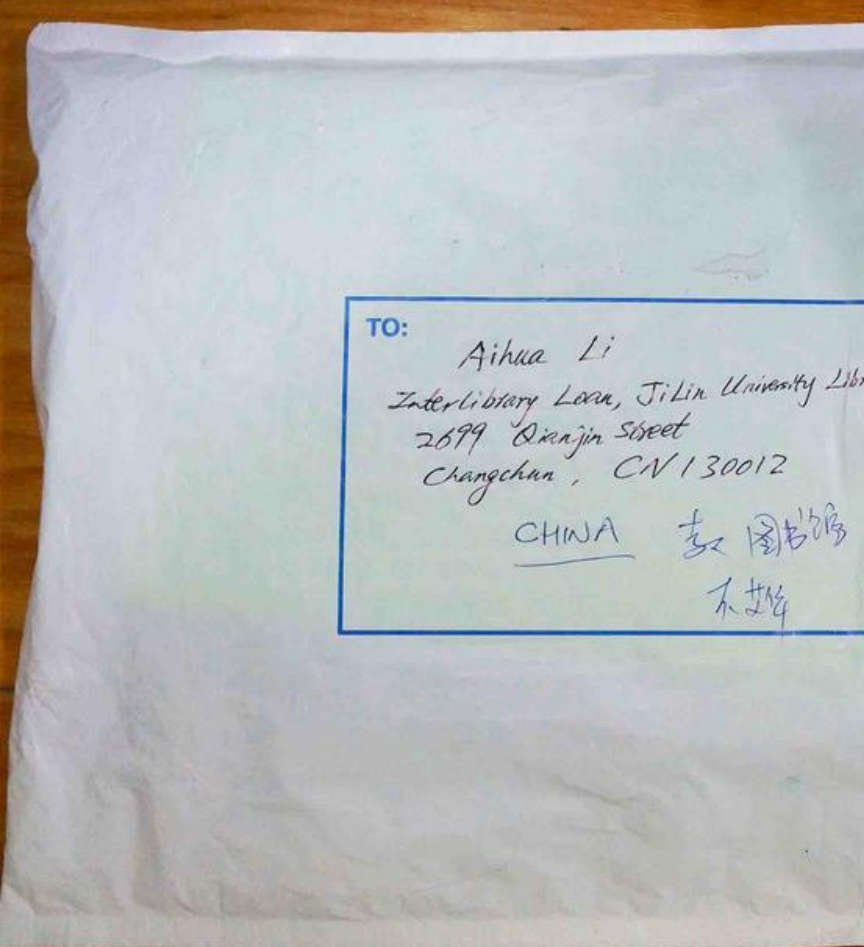 TO:
Aihua Li
Interlibrary Loan, JiLin University Libr
2699 Qianjin Street
Changchun, CN 130012
CHINA 图书馆
艾华